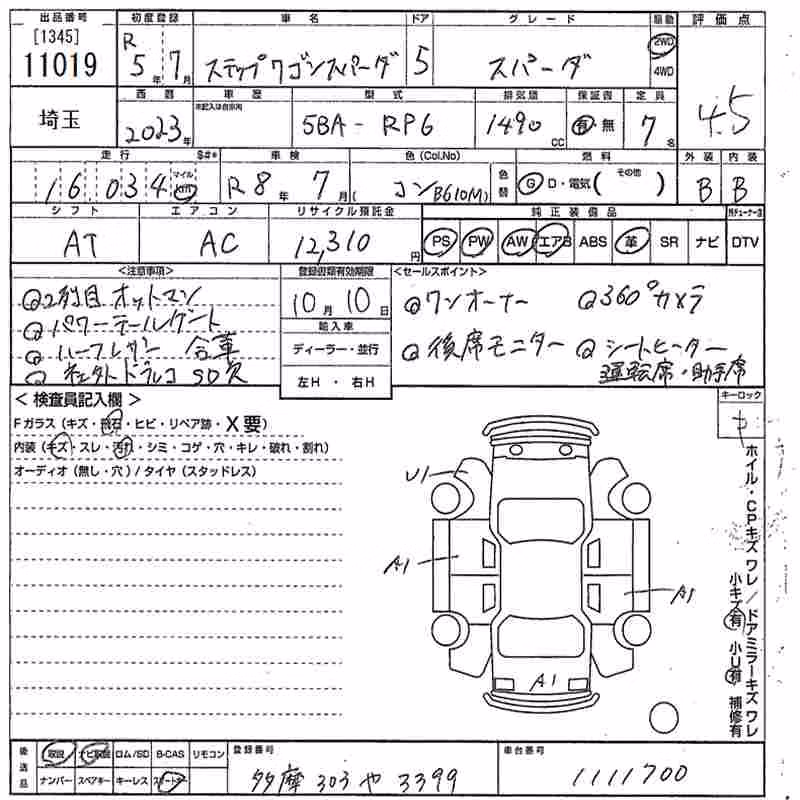 出品番号 初度登録 車名 ドア グレード 駆動 評価点
[1345] 11019 R 5年 7月 ステップワゴンスパーダ 5 スパーダ 2WD 4WD 4.5
埼玉 西暦 車歴 型式 排気量 保証書 定員
2023年 未記入は自家用 5BA-RP6 1490cc 有・無 7名
走行 S#* 車検 色(Col.No) 色替 燃料 外装 内装
16,034 マイル km R8年 7月 コン B610(M) G D・電気( その他 ) B B
シフト エアコン リサイクル預託金 純正装備品
AT AC 12,310円 PS PW AW エアB ABS 革 SR ナビ DTV
<注意事項> 登録書類有効期限 <セールスポイント>
2列目オットマン 10月10日 ワンオーナー 360°カメラ
パワーテールゲート 輸入車
ハーフレザー 合革 ディーラー・並行 後席モニター シートヒーター
ドラレコ SD欠 左H・右H 運転席・助手席
<検査員記入欄> キーロック
Fガラス(キズ・飛石・ヒビ・リペア跡・X要)
内装(キズ・スレ・汚れ・シミ・コゲ・穴・キレ・破れ・割れ)
オーディオ(無し・穴)/タイヤ(スタッドレス)
U1
A1
A1
A1
ホイル・CPキズワレ/ドアミラーキズワレ
小キズ有 小U有 補修有
後送品 取説 ナビ取説 ロム/SD B-CAS リモコン 登録番号 車台番号
ナンバー スペアキー キーレス スマートキー 多摩 303 や 3399 1111700